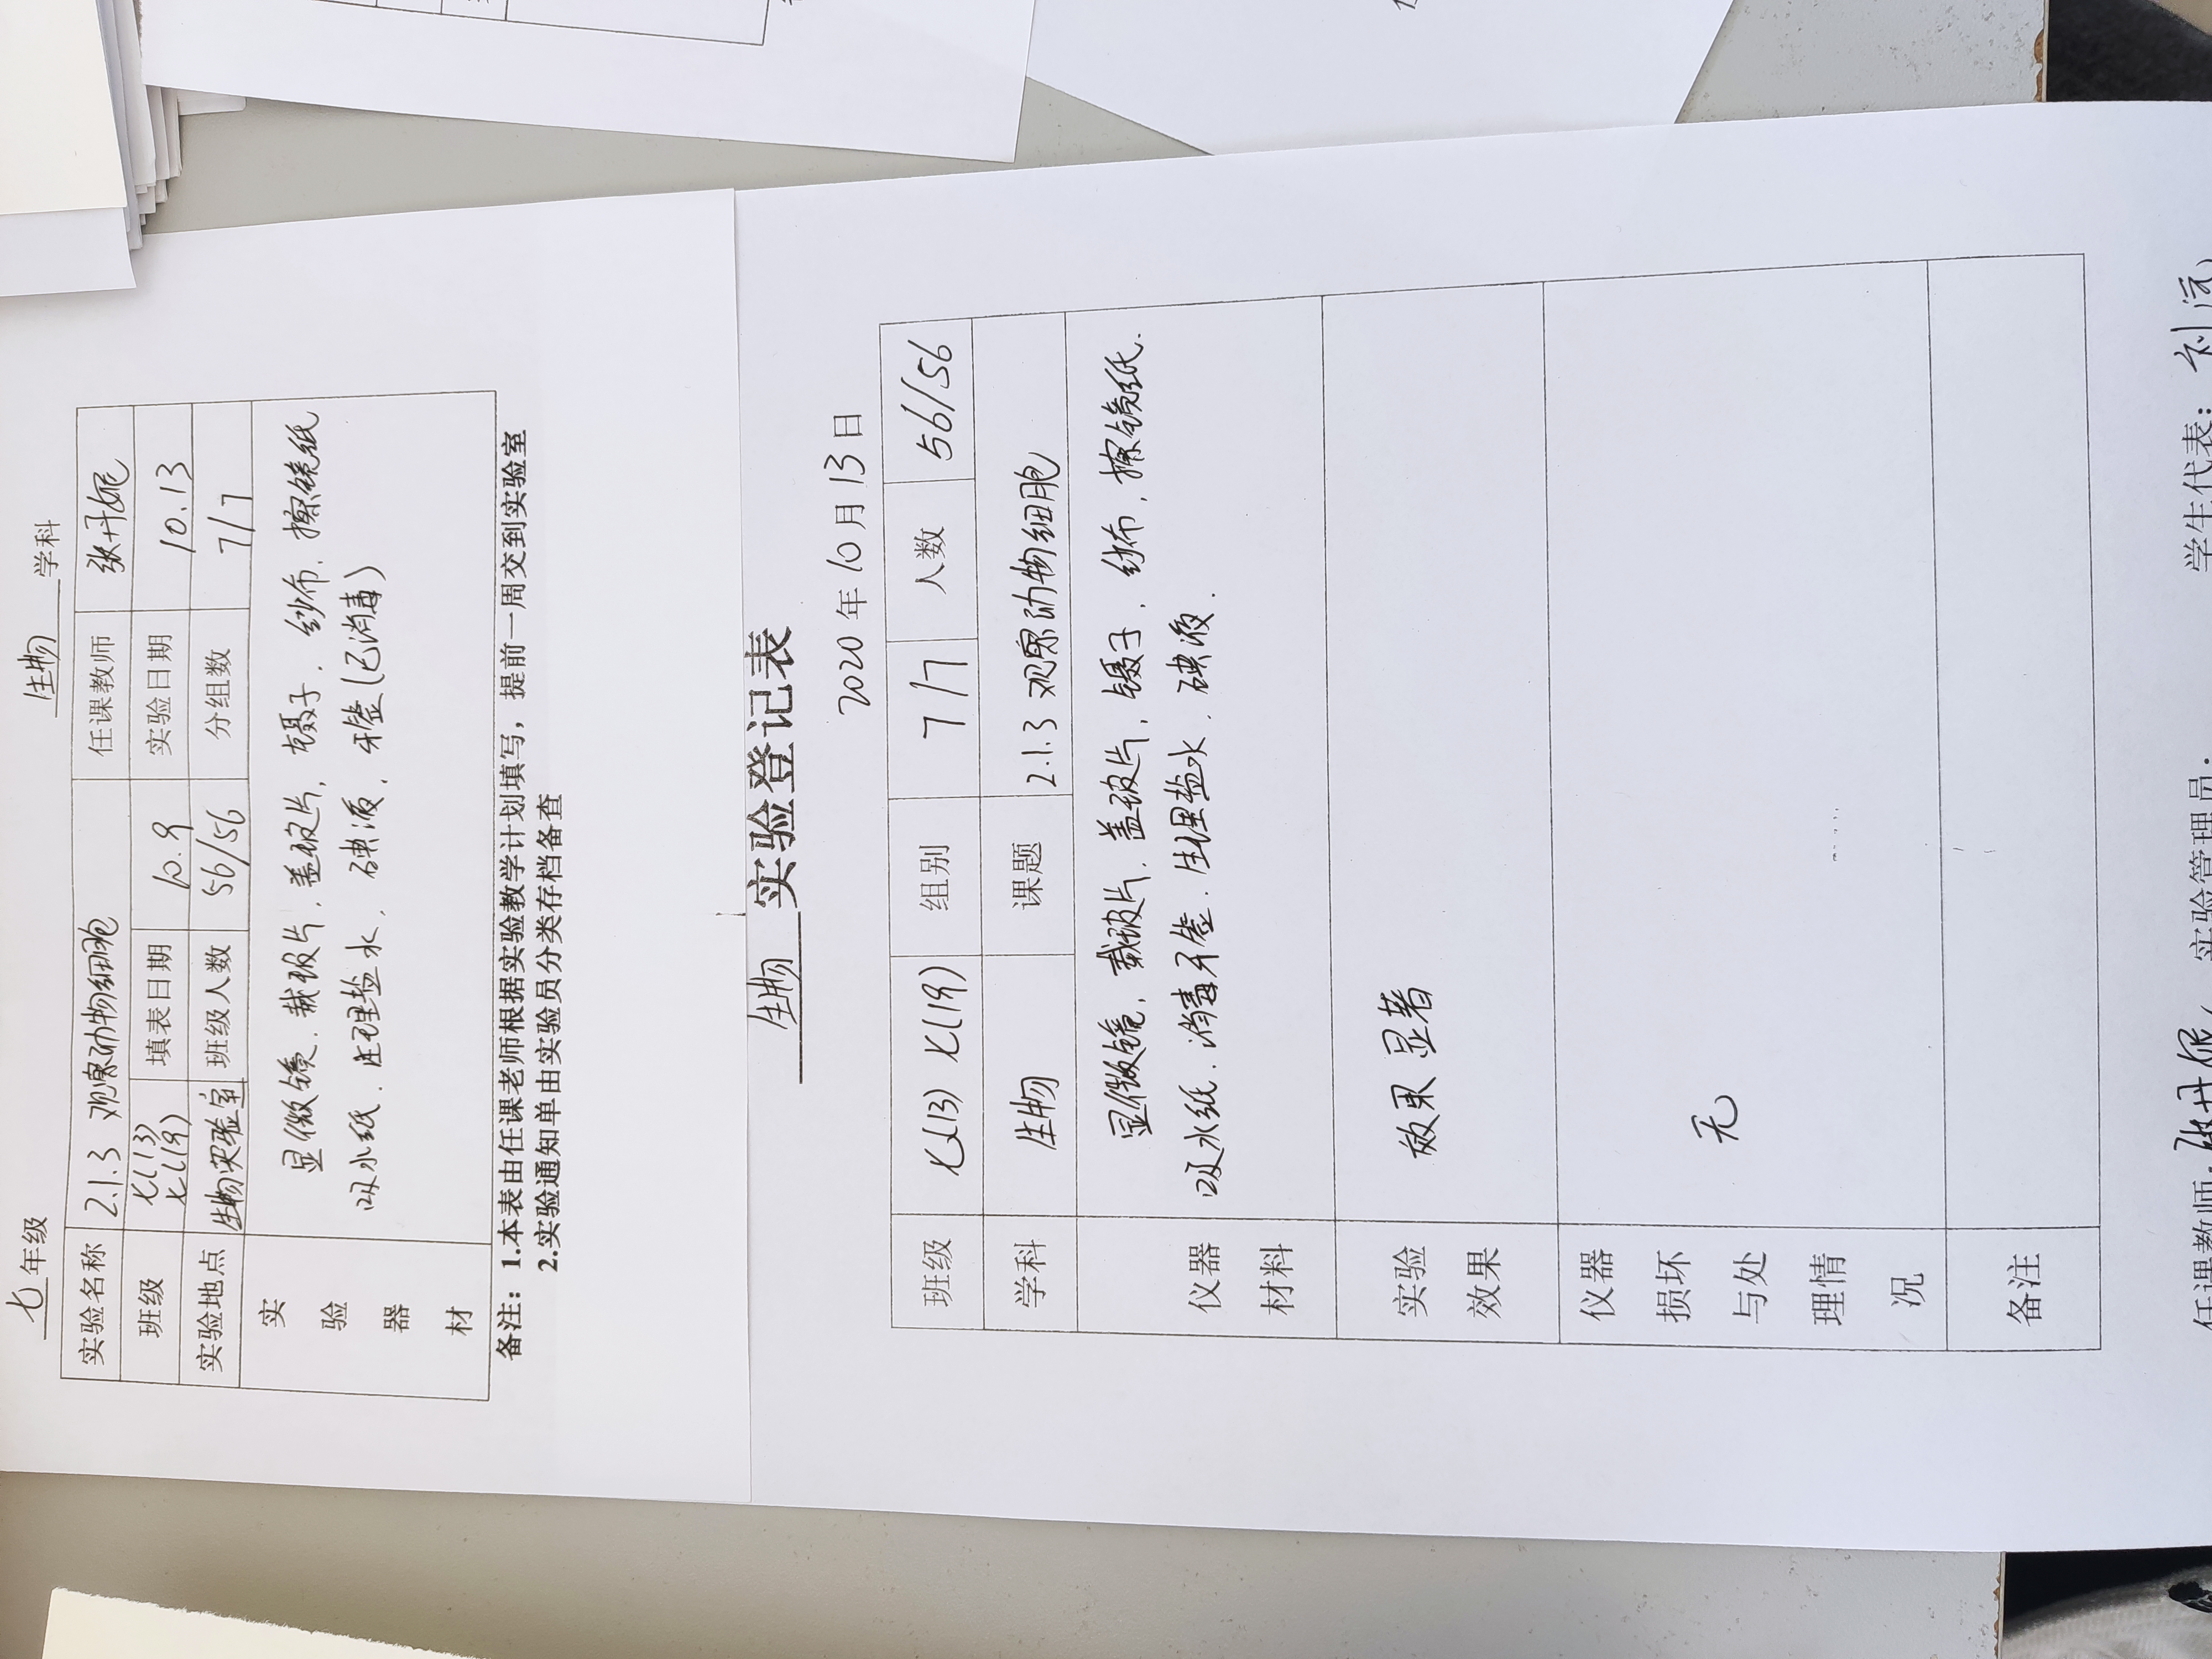 七 年级 生物 学科
实验名称 2.1.3 观察动物细胞 任课教师 张丹妮
班级 七(13) 七(19) 填表日期 10.9 实验日期 10.13
实验地点 生物实验室 班级人数 56/56 分组数 7/7
实验器材 显微镜、载玻片、盖玻片、镊子、纱布、擦镜纸
吸水纸、生理盐水、碘液、牙签(已消毒)
备注：1.本表由任课老师根据实验教学计划填写，提前一周交到实验室
2.实验通知单由实验员分类存档备查
生物 实验登记表
2020 年 10 月 13 日
班级 七(13) 七(19) 组别 7/7 人数 56/56
学科 生物 课题 2.1.3 观察动物细胞
仪器材料 显微镜、载玻片、盖玻片、镊子、纱布、擦镜纸.
吸水纸、消毒牙签、生理盐水、碘液.
实验效果 效果显著
仪器损坏与处理情况 无
备注
任课教师: 张丹妮 实验管理员: 学生代表: